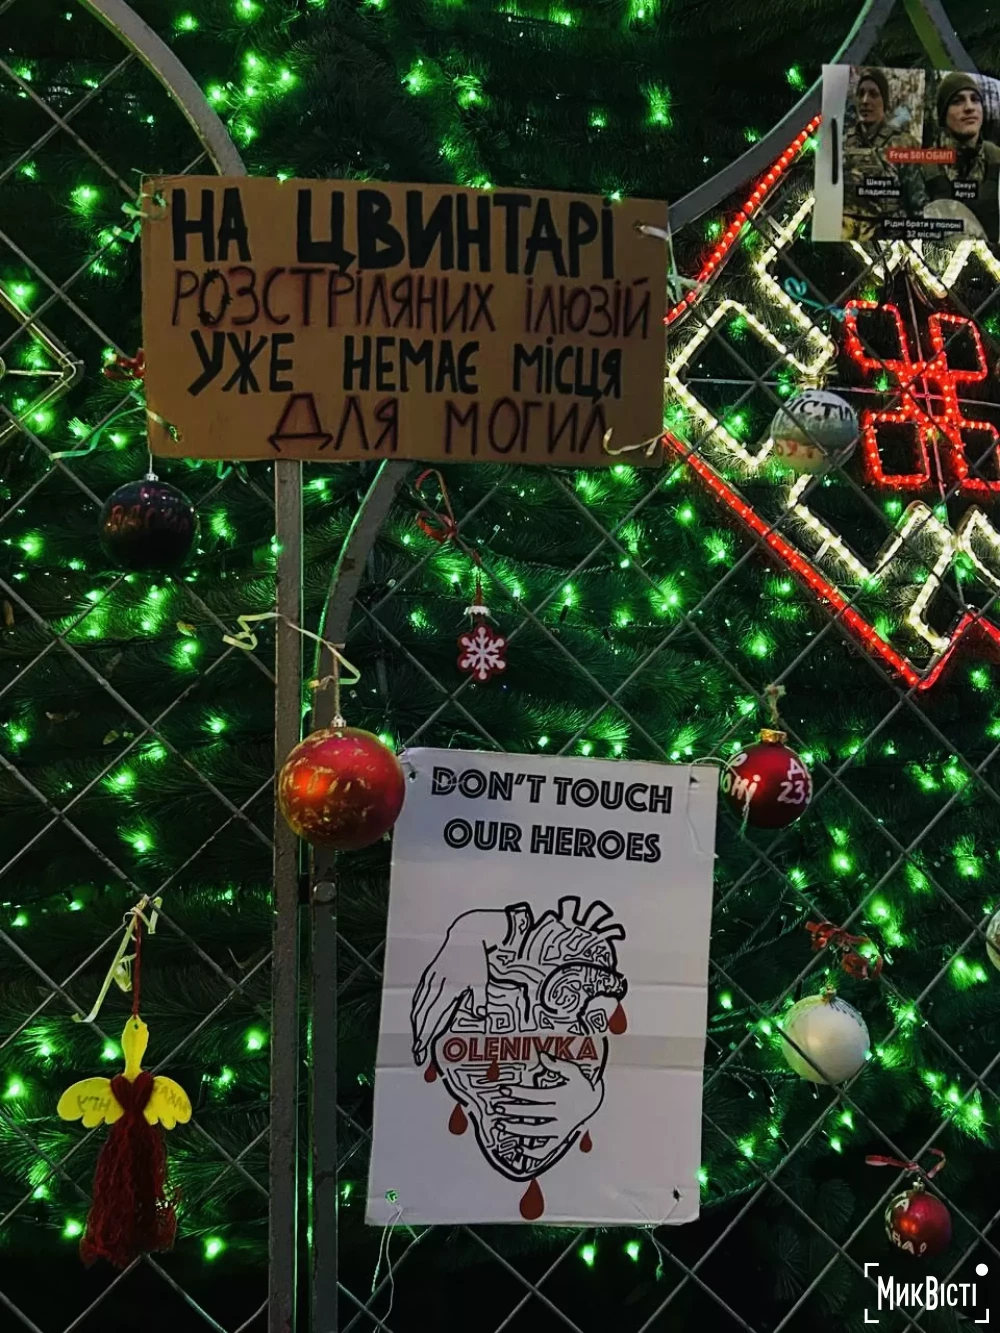 НА ЦВИНТАРІ
РОЗСТРІЛЯНИХ ІЛЮЗІЙ
УЖЕ НЕМАЄ МІСЦЯ
ДЛЯ МОГИЛ
Free 501 ОБМП
Шквул
Владислав
Шквул
Артур
Рідні брати у полоні
32 місяці
DON'T TOUCH
OUR HEROES
OLENIVKA
МикВісті